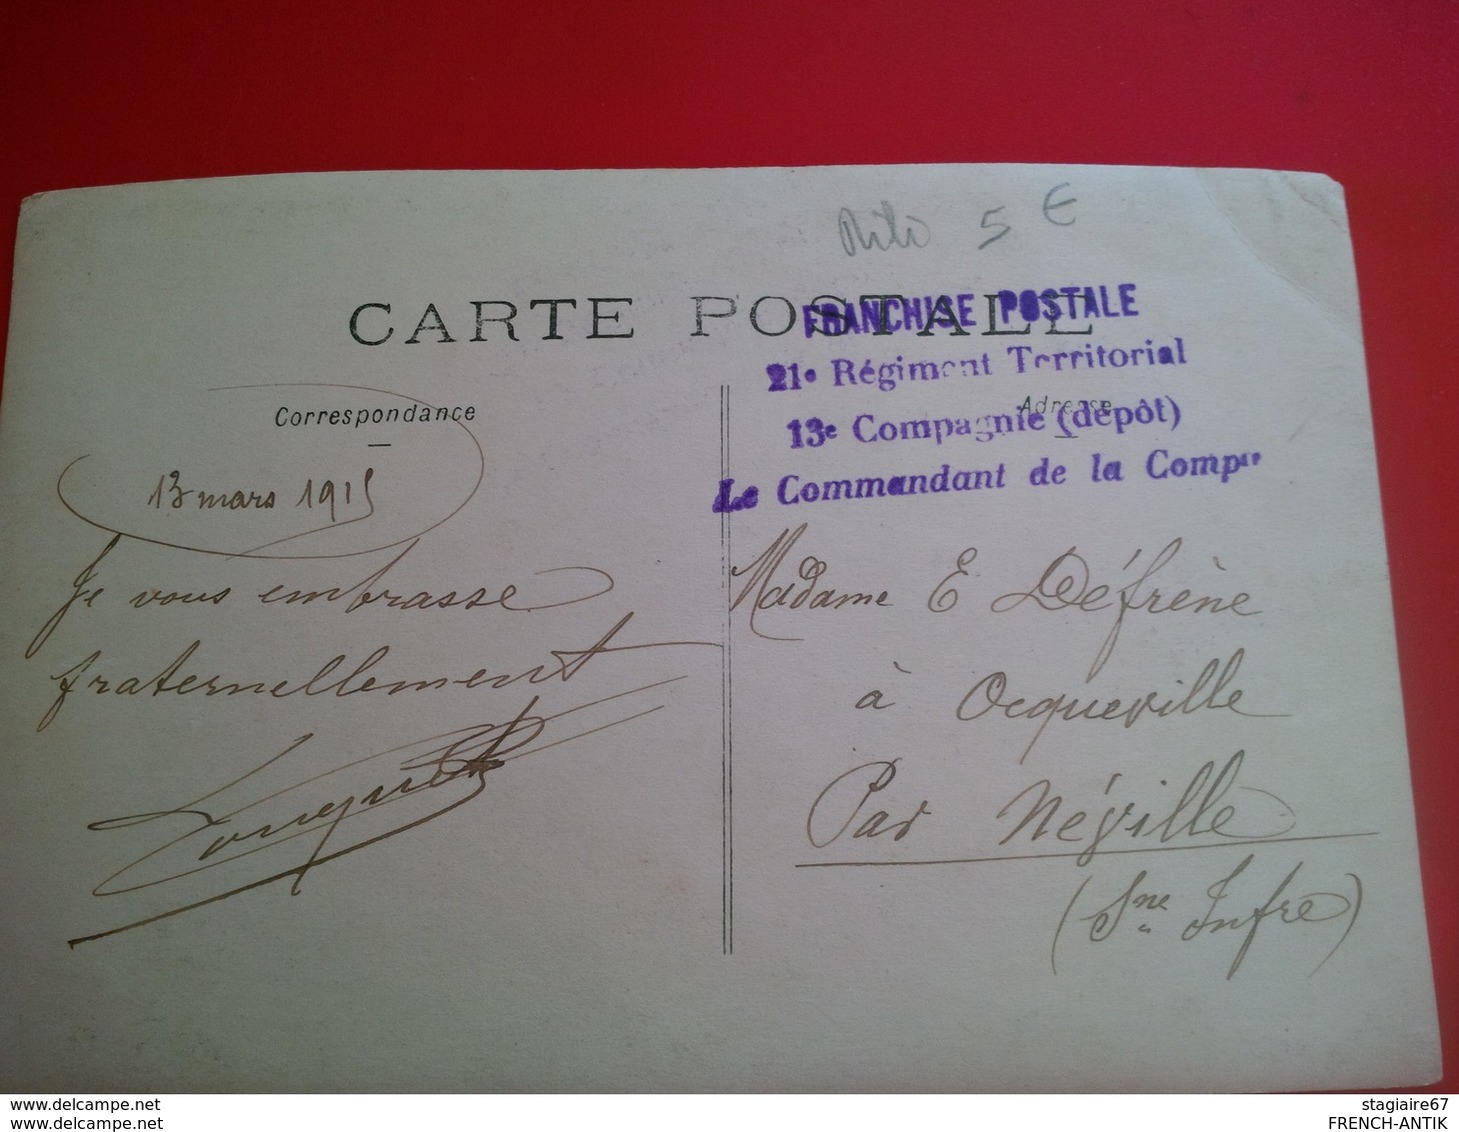 5 €
CARTE POSTALE
FRANCHISE POSTALE
21e Régiment Territorial
13e Compagnie (dépôt)
Le Commandant de la Compie
Correspondance
Adresse
13 mars 1915
Je vous embrasse
fraternellement
Madame E Défrène
à Ocqueville
Par Néville
(Sne Infre)
www.delcampe.net
www.delcampe.net
stagiaire67
FRENCH-ANTIK